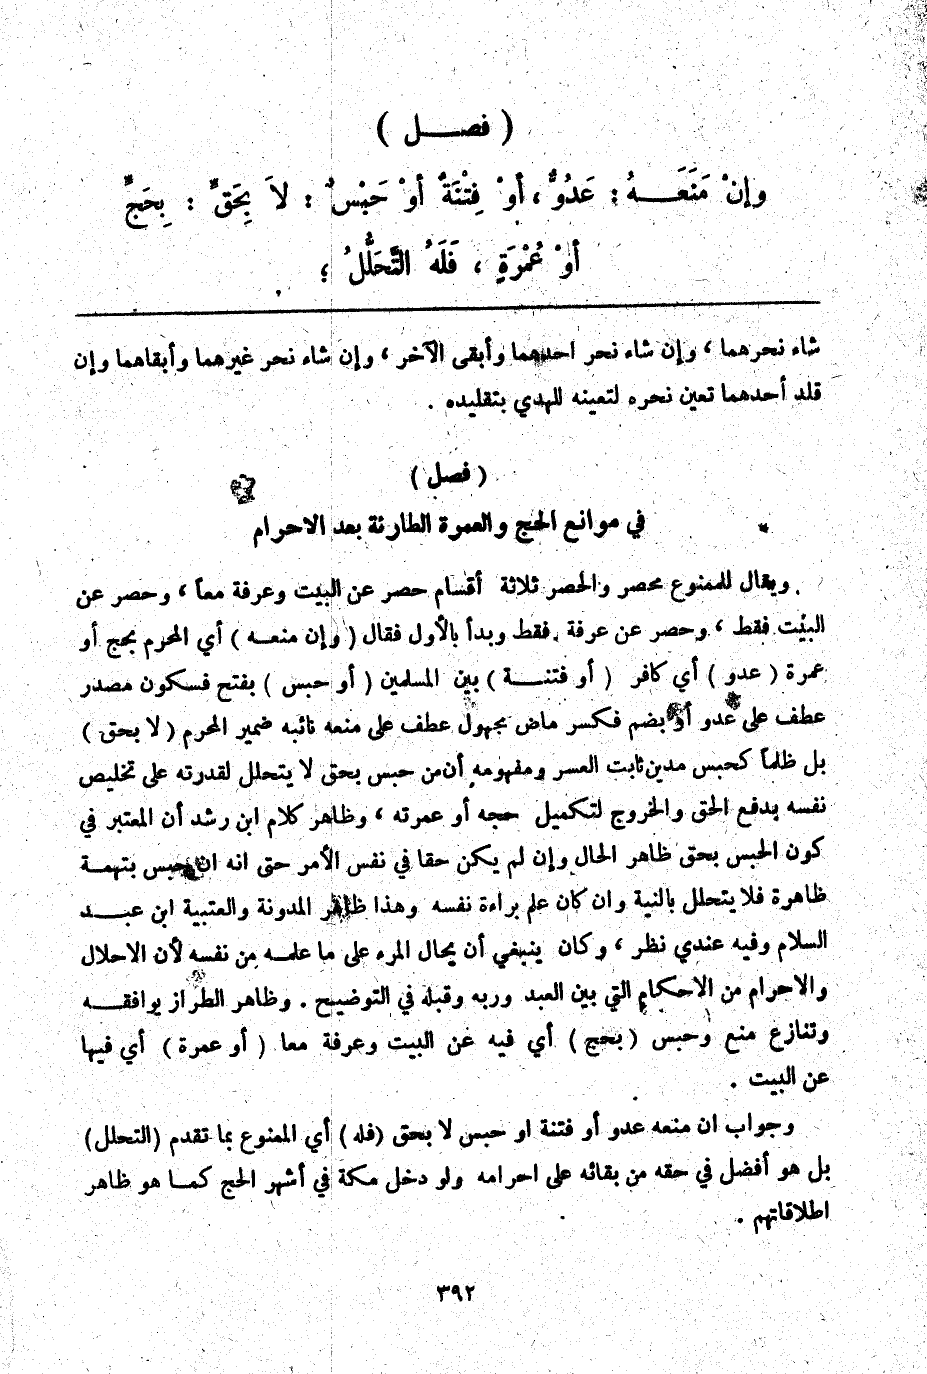 ( فصــل )
وإنْ مَنَعَــهُ : عَدُوٌّ ، أوْ فِتْنَةٌ أوْ حَبْسٌ : لاَ بِحَقٍّ : بِحَجٍّ
أوْ عُمْرَةٍ ، فَلَهُ التَّحَلُّلُ ؛
شاء نحرهما ، وإن شاء نحر احدهما وأبقى الآخر ، وإن شاء نحر غيرهما وأبقاهما وإن
قلد أحدهما تعين نحره لتعينه للهدي بتقليده .
( فصل )
في موانع الحج والعمرة الطارئة بعد الاحرام
ويقال للممنوع محصر والحصر ثلاثة أقسام حصر عن البيت وعرفة معاً ، وحصر عن
البيت فقط ، وحصر عن عرفة فقط وبدأ بالأول فقال ( وإن منعــه ) أي المحرم بحج أو
عمرة ( عدو ) أي كافر ( أو فتنــة ) بين المسلمين ( أو حبس ) بفتح فسكون مصدر
عطف على عدو أو بضم فكسر ماض مجهول عطف على منعه نائبه ضمير المحرم ( لا بحق )
بل ظلماً كحبس مدين ثابت العسر ومفهومه أن من حبس بحق لا يتحلل لقدرته على تخليص
نفسه بدفع الحق والخروج لتكميل حجه أو عمرته ، وظاهر كلام ابن رشد أن المعتبر في
كون الحبس بحق ظاهر الحال وإن لم يكن حقا في نفس الأمر حتى انه ان حبس بتهمــة
ظاهرة فلا يتحلل بالنية وان كان علم براءة نفسه وهذا ظاهر المدونة والعتبية ابن عبــد
السلام وفيه عندي نظر ، وكان ينبغي أن يحال المرء على ما علمــه من نفسه لأن الاحلال
والاحرام من الاحكام التي بين العبد وربه وقبله في التوضيح . وظاهر الطراز يوافقــه
وتنازع منع وحبس ( بحج ) أي فيه عن البيت وعرفة معا ( أو عمرة ) أي فيها
عن البيت .
وجواب ان منعه عدو أو فتنة او حبس لا بحق (فله) أي الممنوع بما تقدم (التحلل)
بل هو أفضل في حقه من بقائه على احرامه ولو دخل مكة في أشهر الحج كمــا هو ظاهر
اطلاقاتهم .
٣٩٢